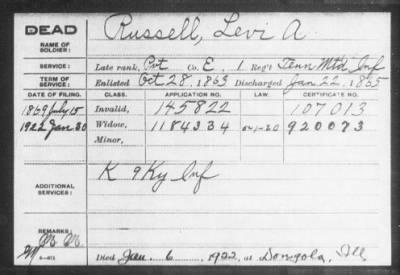 DEAD Russell, Levi A
NAME OF SOLDIER:
SERVICE: Late rank, Pvt Co. E, 1 Reg't Tenn Mtd Inf
TERM OF SERVICE: Enlisted Oct 28, 1863 Discharged Jan 22, 1865
DATE OF FILING. CLASS. APPLICATION NO. LAW. CERTIFICATE NO.
1869 July 15 Invalid, 145822 107013
1922 Jan 30 Widow, 1184334 920073
Minor,
ADDITIONAL SERVICES: K 9 Ky Inf
REMARKS:
Died Jan. 6, 1922, at Dongola, Ill